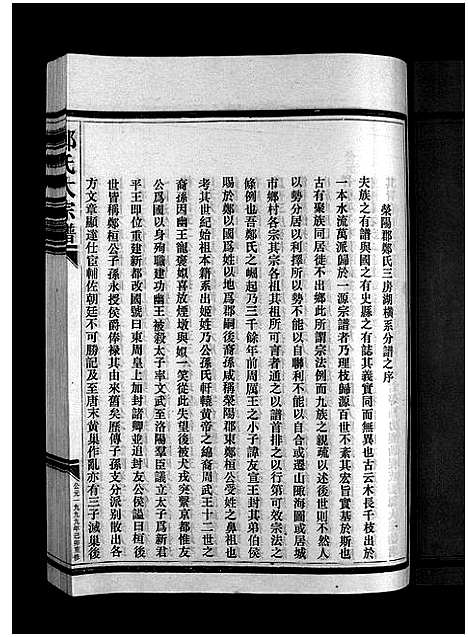 滎陽郡鄭氏三房湖橫系分譜之序
夫族之有譜與國之有史縣之有誌其義實同而無異也古云木長千枝出於
一本水流萬派歸於一源宗譜者乃理枝歸源百世不紊其宏旨實基於斯也
古有聚族同居徙不出鄉此所謂宗法例而九族之親疏以述後世則不然人
以勢分居以利擇所以勢不能以自聯利不能以自合或遷山陬海圖或居城
市鄉村各宗其宗各祖其祖所可言者通之以譜首排之以行第可效宗法之
條例也吾鄭氏之崛起乃三千餘年前周厲王之小子諱友宣王封其弟伯侯
賜於鄭以國為姓以地為郡嗣後裔孫咸稱滎陽郡東鄭桓公受姓之鼻祖也
考其世紀始祖本籍系出姬姓乃公孫氏軒轅黃帝之綿裔周武王十二世之
裔孫因幽王寵褒姒喜放煙墩與姒一笑從此失望後被犬戎突擊京都惟友
公為國以身殉職建功幽王被殺太子率文武至洛陽羣臣議立太子為新君
平王即位重建新都改國號曰東周皇上加封諸卿並追封友公侯謚曰桓後
世皆稱鄭桓公子孫永授侯爵俸祿其由來舊矣歷傳子孫支分派別散出各
方文章顯達仕宦輔佐朝廷不可勝記及至唐末黃巢作亂亦有三子滅巢後
氏大宗譜
公元一九九九年己卯重修